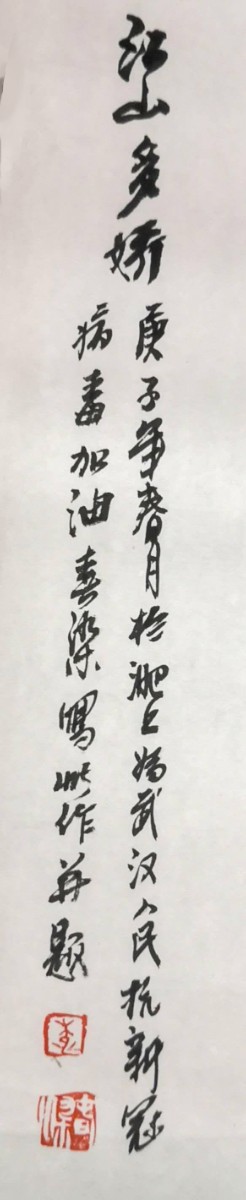 江山多娇
庚子年春月於淝上为武汉人民抗新冠
病毒加油春梁写此作并题